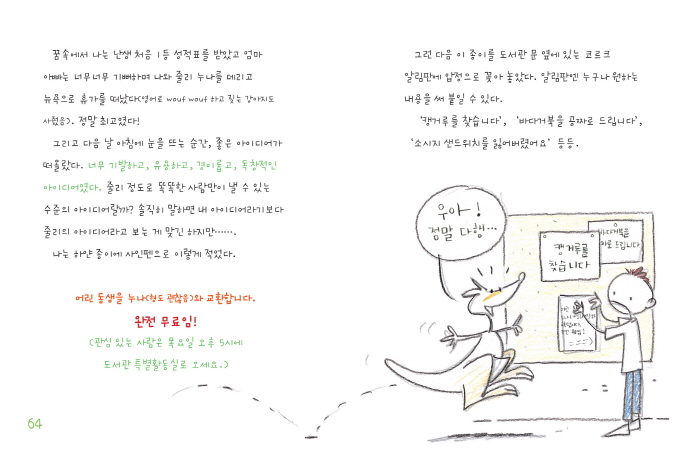 꿈속에서 나는 난생 처음 1등 성적표를 받았고 엄마
아빠는 너무너무 기뻐하며 나와 줄리 누나를 데리고
뉴욕으로 휴가를 떠났다(영어로 wouf wouf 하고 짖는 강아지도
사줬음). 정말 최고였다!
그리고 다음 날 아침에 눈을 뜨는 순간, 좋은 아이디어가
떠올랐다. 너무 기발하고, 유용하고, 경이롭고, 독창적인
아이디어였다. 줄리 정도로 똑똑한 사람만이 낼 수 있는
수준의 아이디어랄까? 솔직히 말하면 내 아이디어라기보다
줄리의 아이디어라고 보는 게 맞긴 하지만…….
나는 하얀 종이에 사인펜으로 이렇게 적었다.
어린 동생을 누나(형도 괜찮음)와 교환합니다.
완전 무료임!
(관심 있는 사람은 목요일 오후 5시에
도서관 특별활동실로 오세요.)
64
그런 다음 이 종이를 도서관 문 옆에 있는 코르크
알림판에 압정으로 꽂아 놓았다. 알림판엔 누구나 원하는
내용을 써 붙일 수 있다.
'캥거루를 찾습니다', '바다거북을 공짜로 드립니다',
'소시지 샌드위치를 잃어버렸어요' 등등.
우아!
정말 다행…
바다거북을
짜로 드립니다
캥거루를
찾습니다